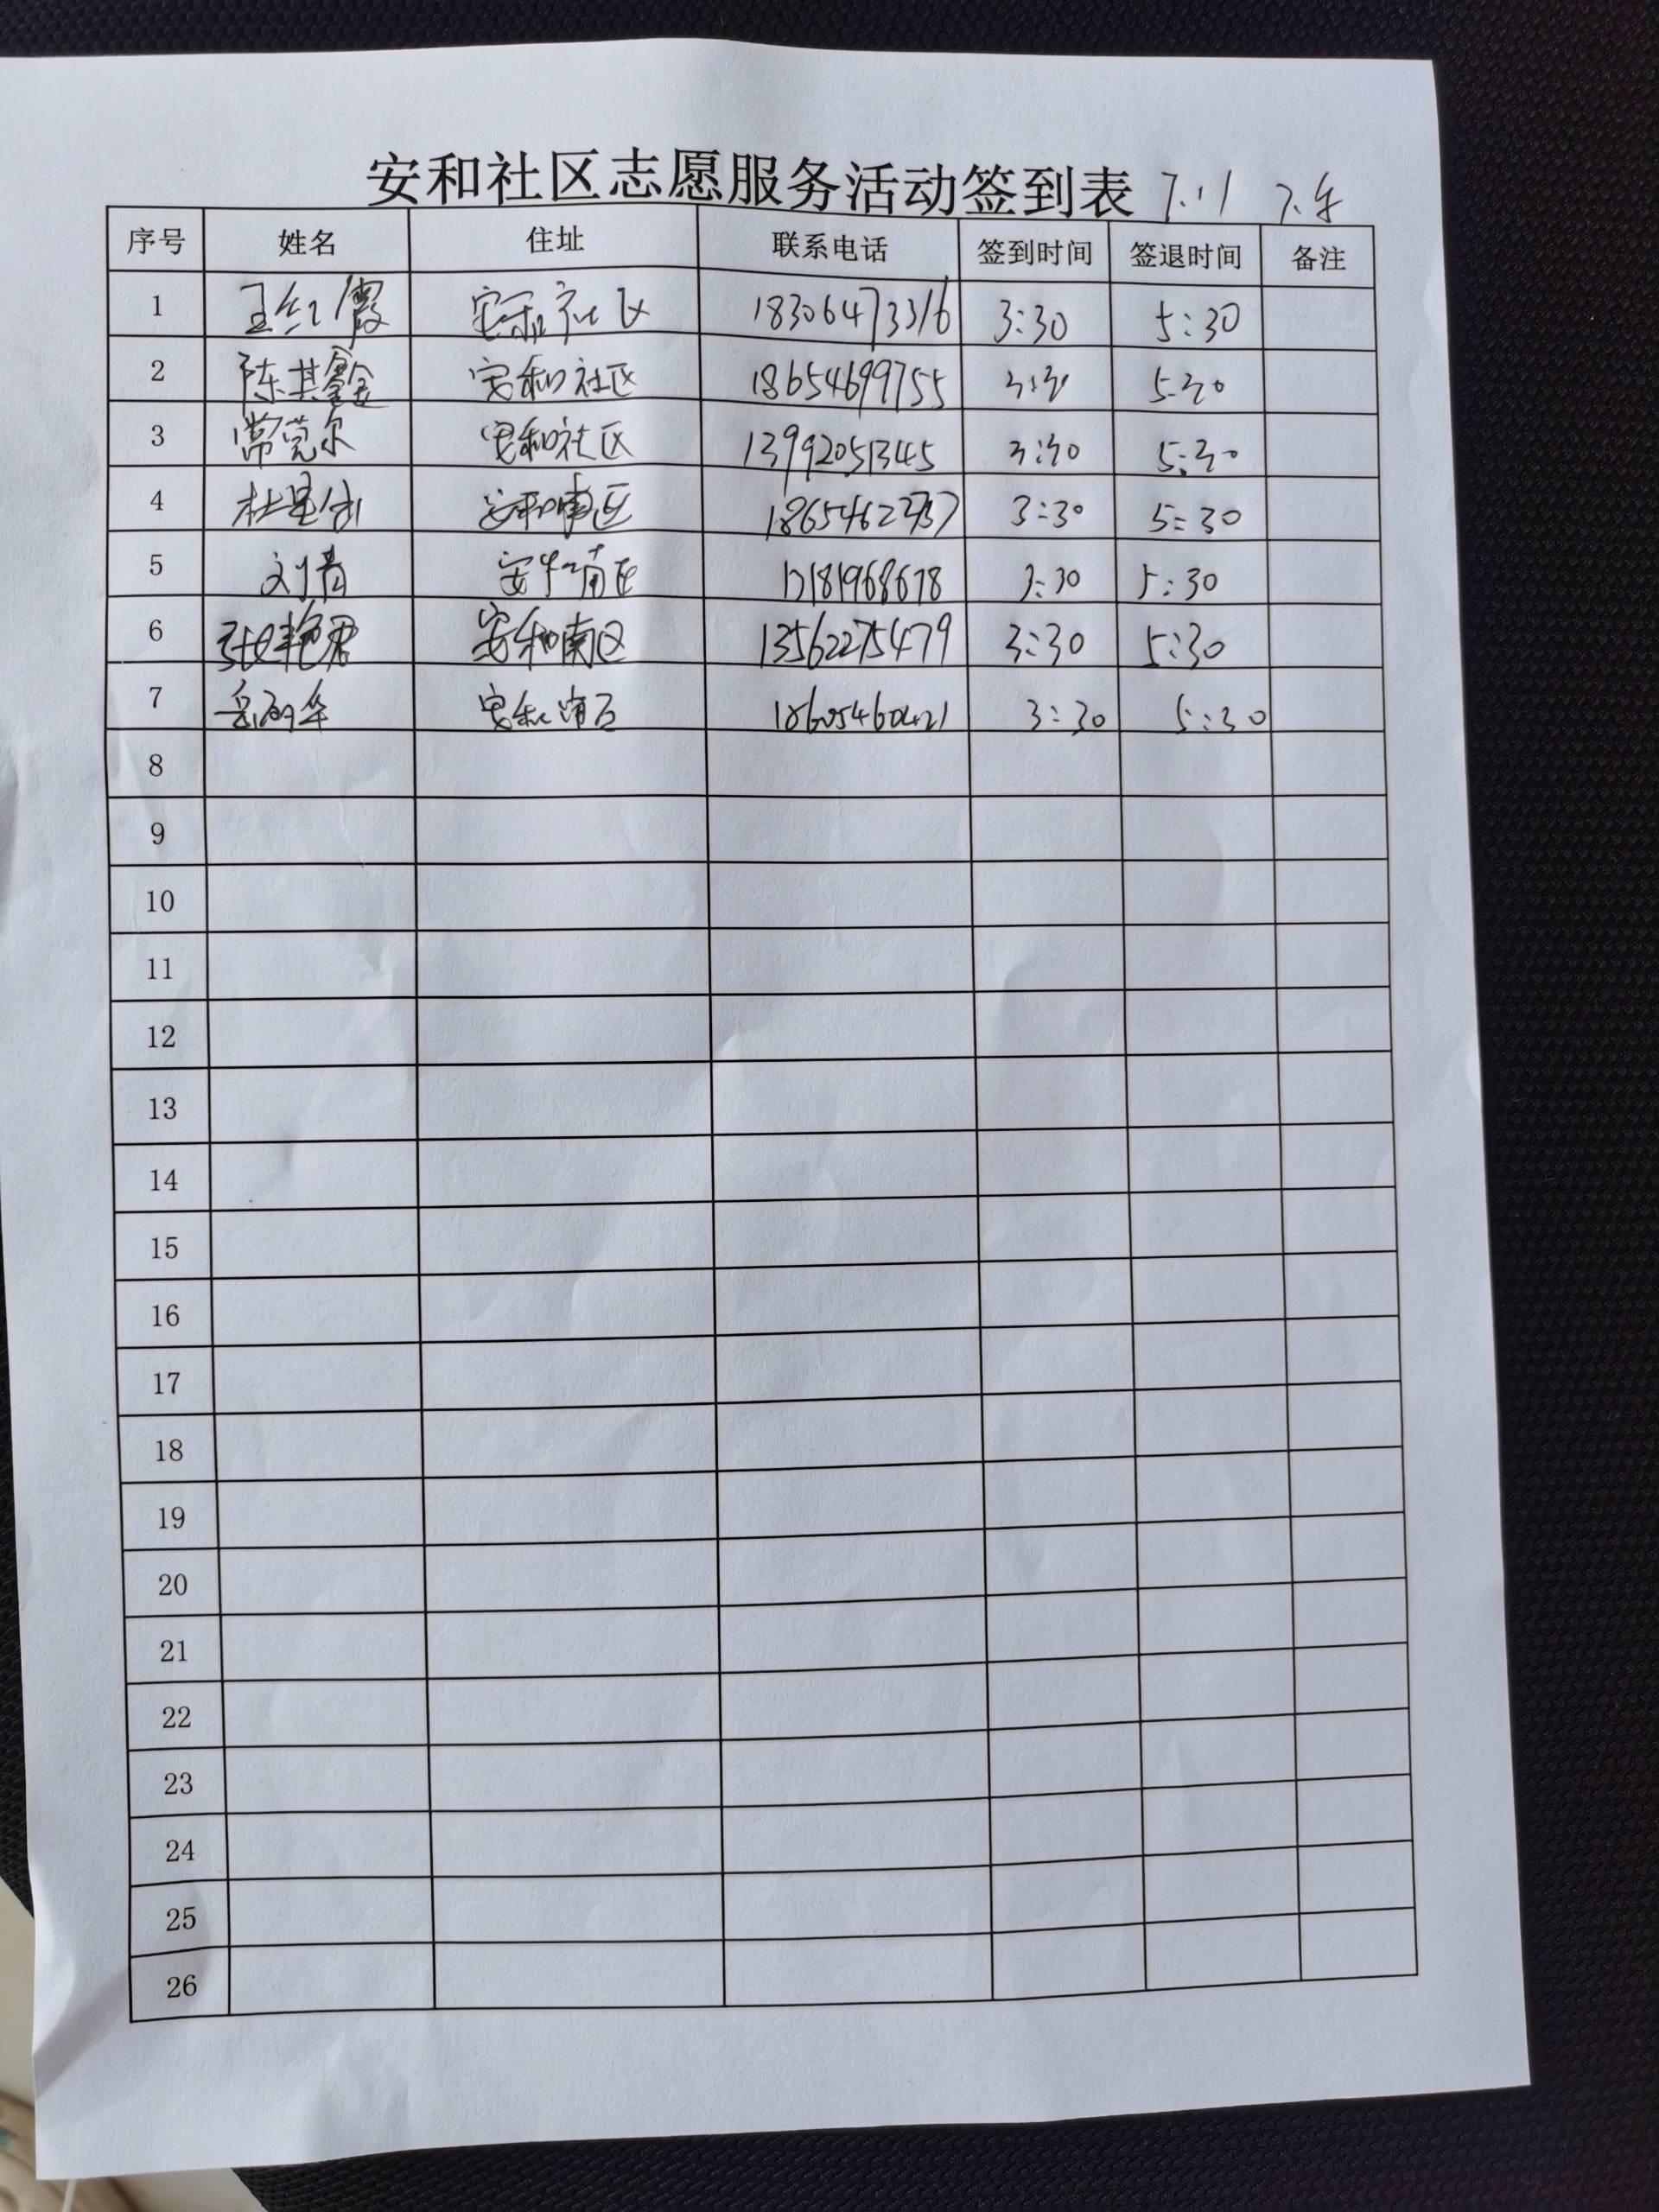 安和社区志愿服务活动签到表 7.11 下午
序号 姓名 住址 联系电话 签到时间 签退时间 备注
1 王红霞 安和社区 18306473316 3:30 5:30
2 陈其鑫 安和社区 18654699755 3:30 5:30
3 常莞尔 安和社区 13992051345 3:30 5:30
4 安和南区 3:30 5:30
5 刘青 安和南区 3:30 5:30
6 张艳君 安和南区 13562275479 3:30 5:30
7 岳丽华 安和南区 18605460421 3:30 5:30
8
9
10
11
12
13
14
15
16
17
18
19
20
21
22
23
24
25
26